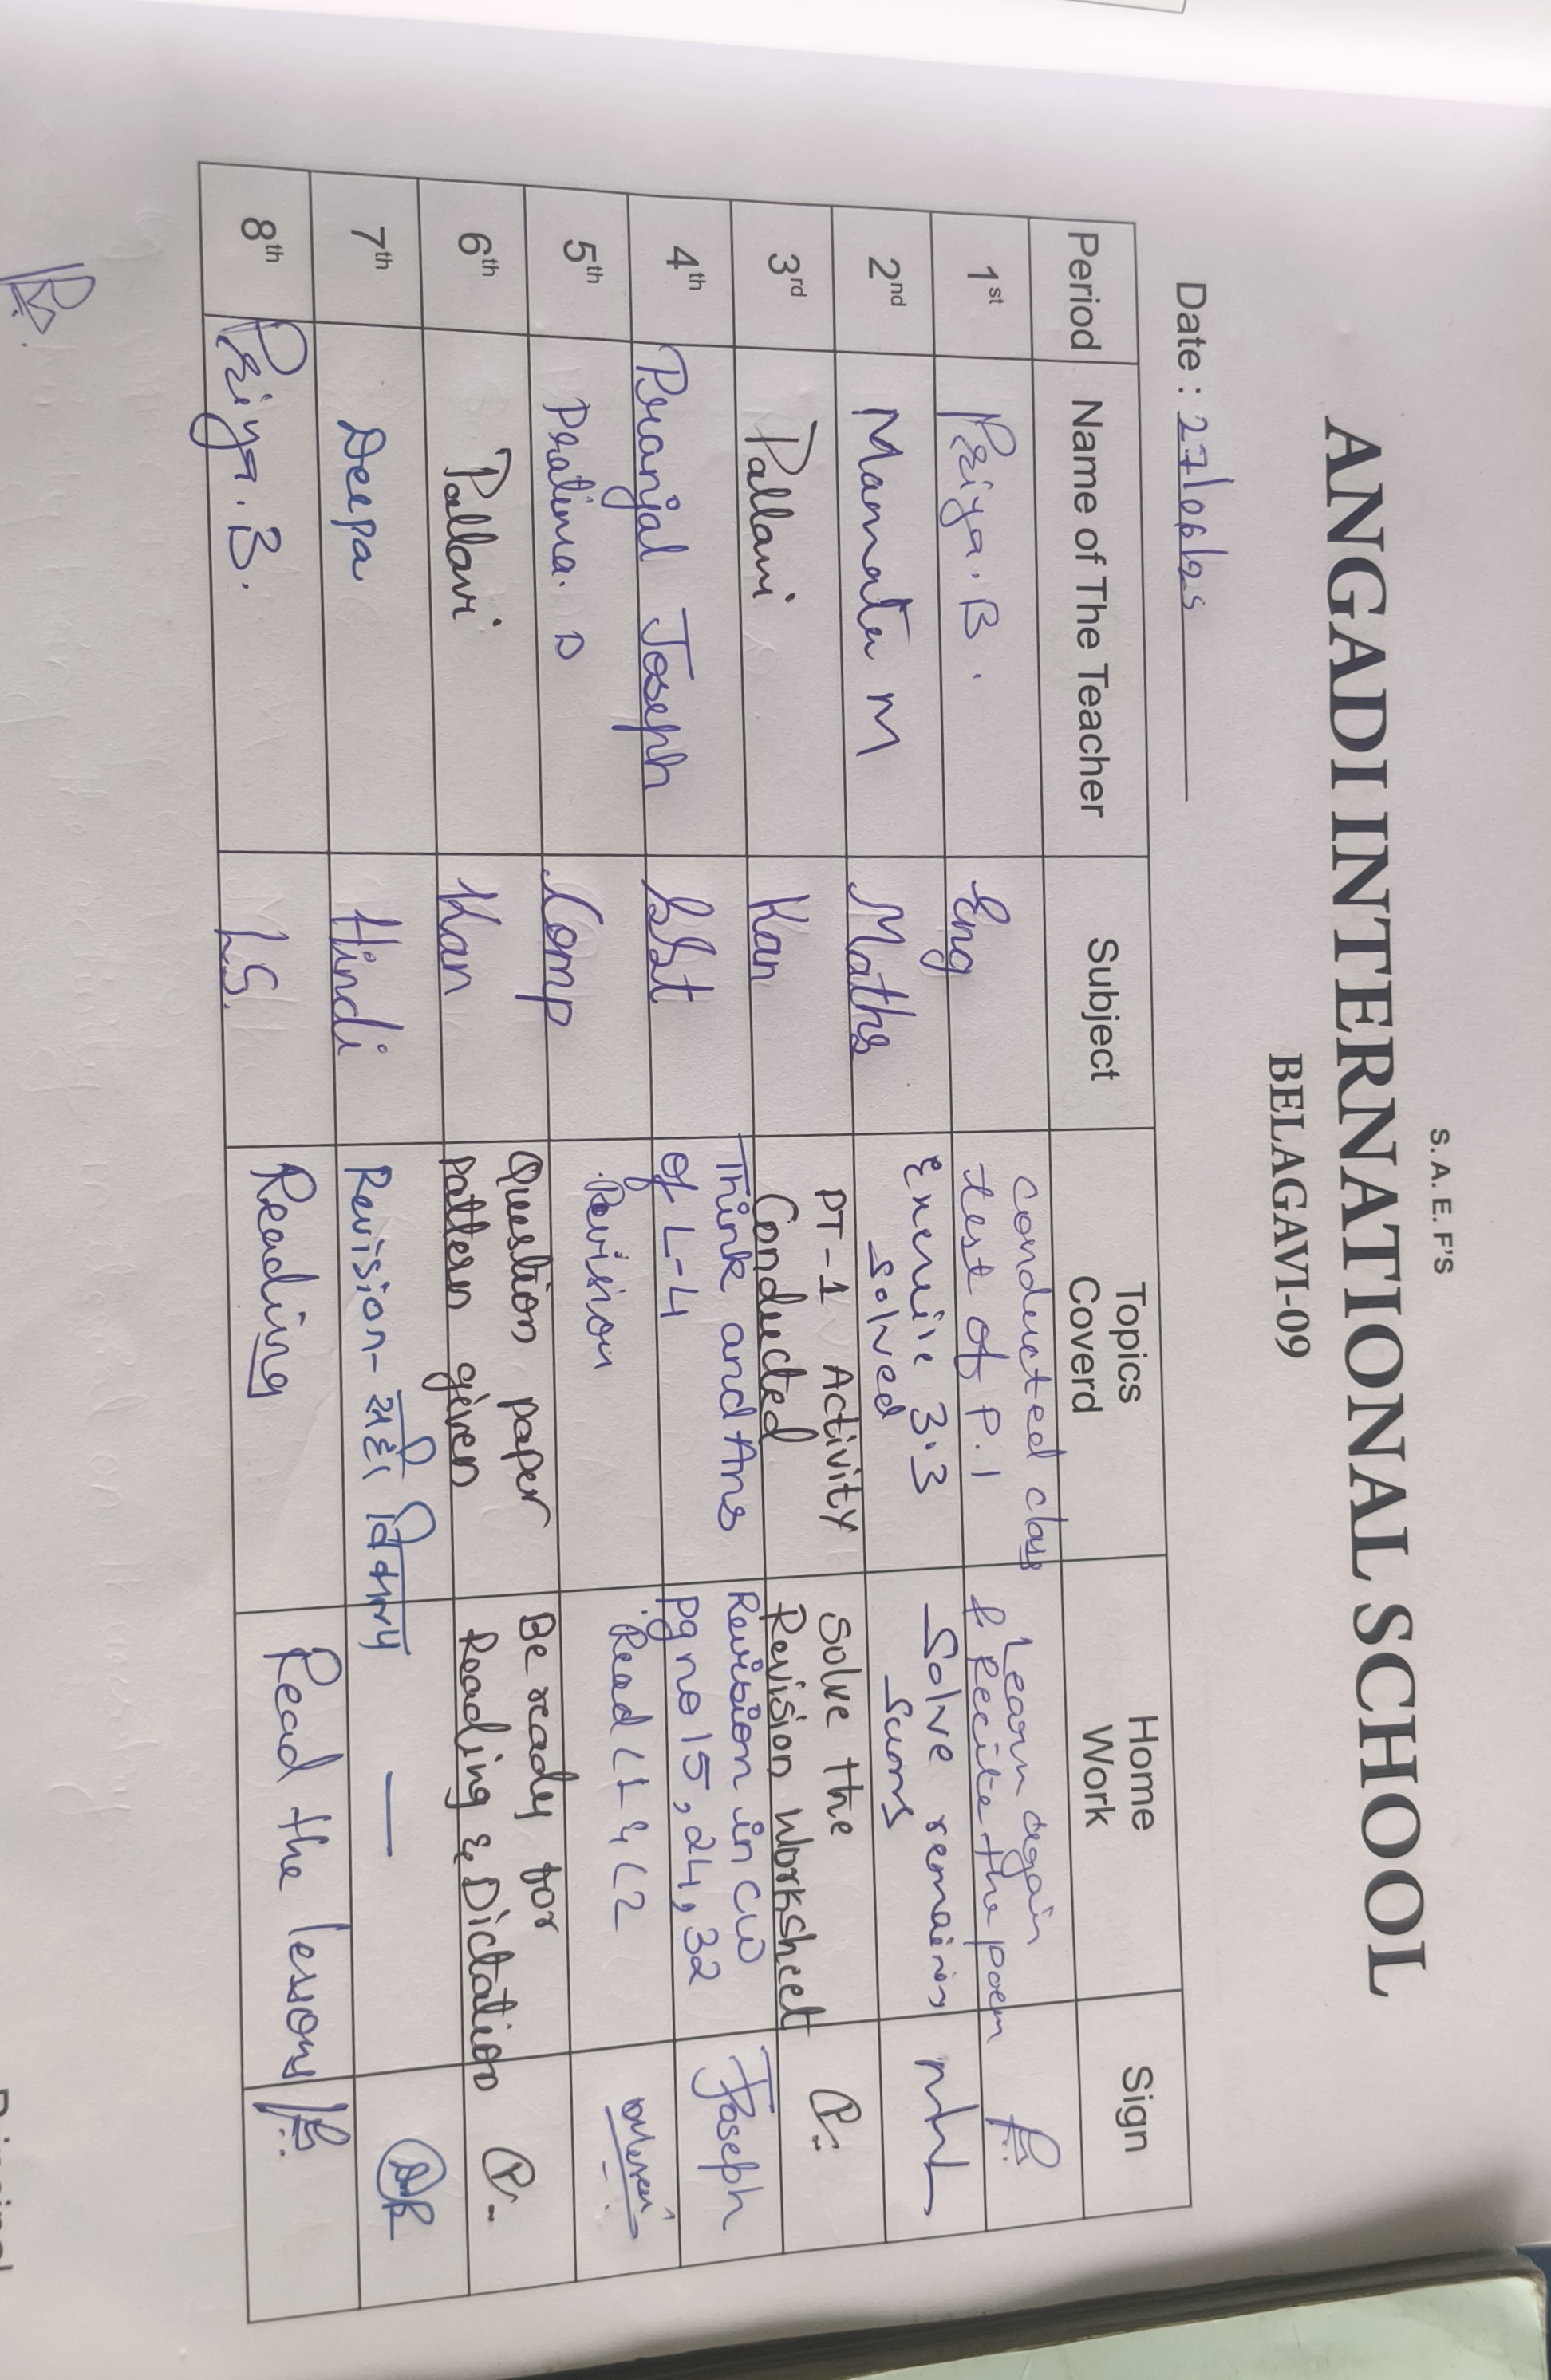 S. A. E. F'S
ANGADI INTERNATIONAL SCHOOL
BELAGAVI-09
Date : 27/06/25
Period Name of The Teacher Subject Topics Coverd Home Work Sign
1st Priya. B. Eng conducted class test of P.1 Learn again & Recite the poem
2nd Mamata M Maths Exercise 3.3 Solved Solve remaining Sums
3rd Pallavi Kan PT-1 Activity Conducted Solve the Revision Worksheet P.
4th Pranjal Joseph SSt Think and Ans of L-4 Revision in CW pg no 15, 24, 32 Joseph
5th Pratima. D Comp Revision Read L1 & L2
6th Pallavi Kan Question paper pattern given Be ready for Reading & Dictation P.
7th Deepa Hindi Revision- सही विकल्प —
8th Priya. B. Reading Read the lessons
Principal